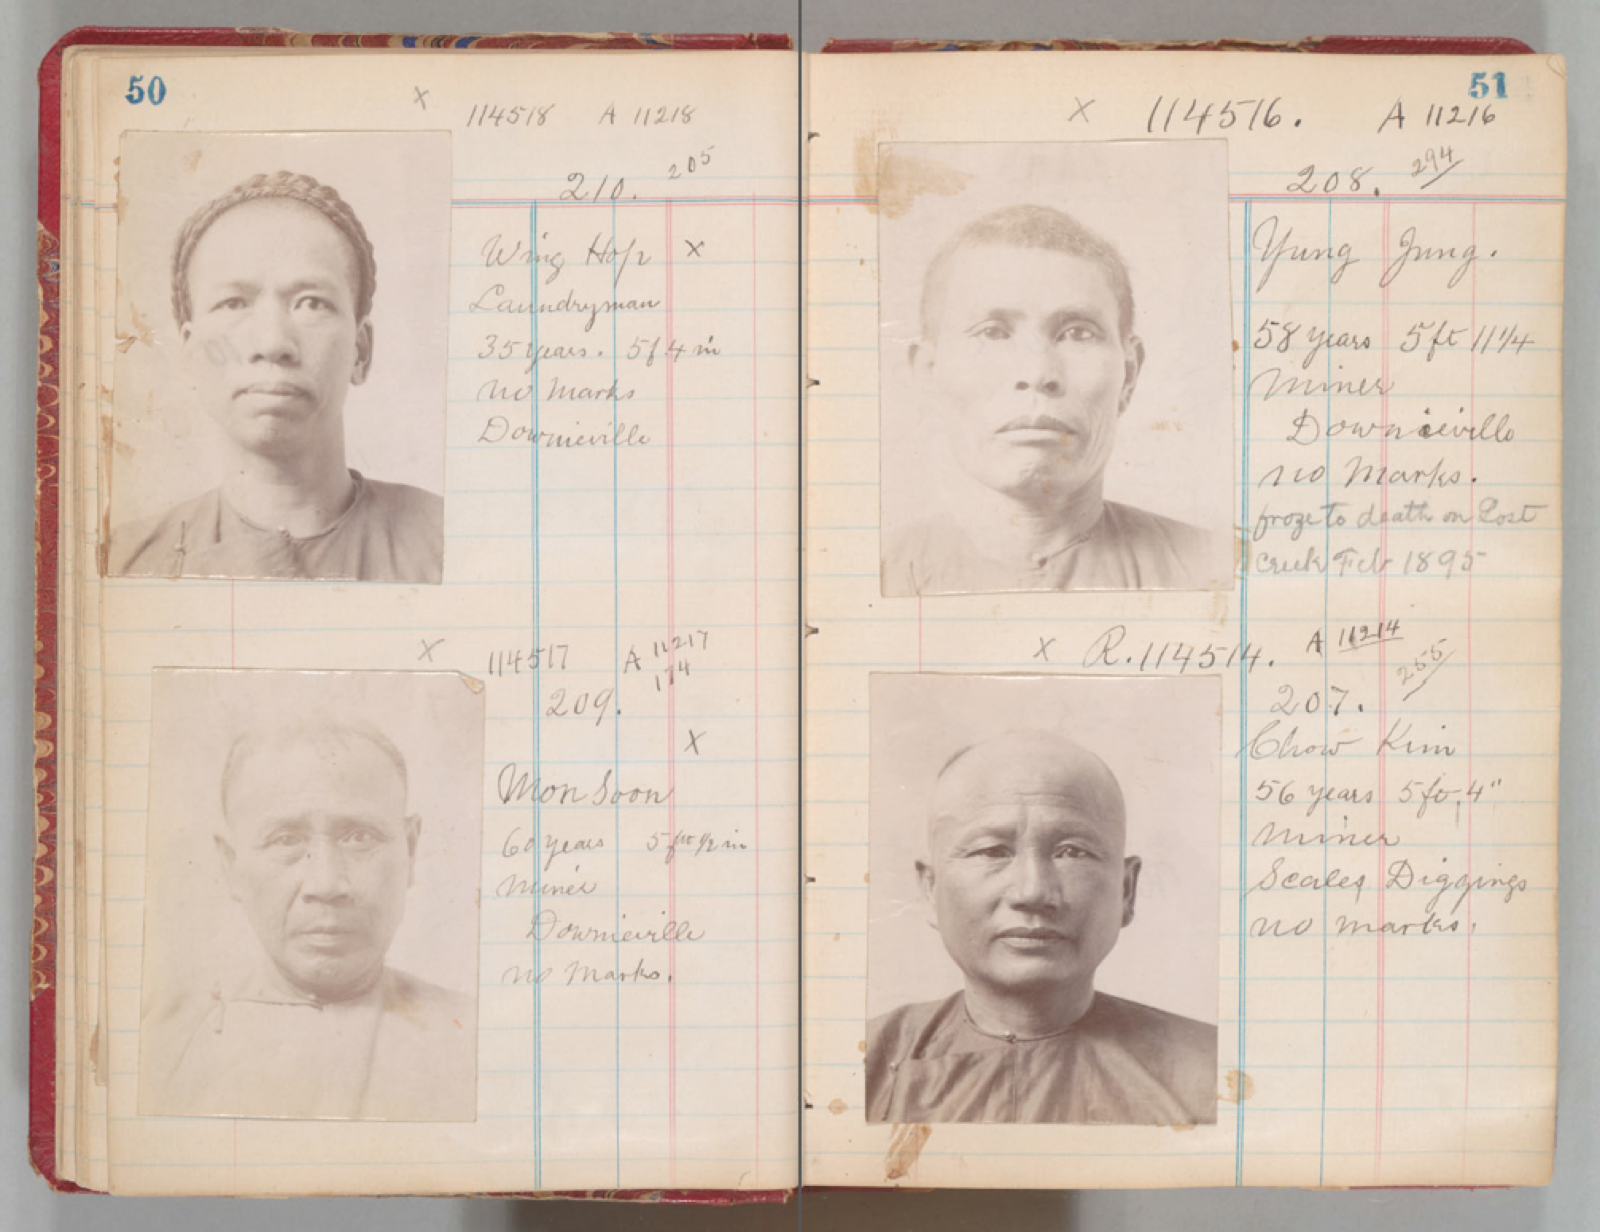 50
x 114518 A 11218
210. 205
Wing Hop x
Laundryman
35 years. 5f 4 in
no Marks
Downieville
x 114517 A 11217
174
209.
x
Mon Soon
60 years 5 ft 1/2 in
miner
Downieville
no Marks.
51
x 114516. A 11216
208. 294
Yung Jung.
58 years 5 ft 11 1/4
Miner
Downieville
no Marks.
froze to death on Post
creek Feb 1895
x R. 114514. A 11214
255
207.
Chow Kim
56 years 5 ft, 4"
Miner
Scales Diggings
no marks.